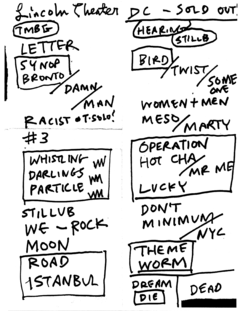 Lincoln Theater
DC - SOLD OUT
TMBG
LETTER
SYNOP
BRONTO
DAMN
MAN
RACIST • T-SOLO!
#3
WHISTLING
DARLINGS
PARTICLE
STILLUB
WE - ROCK
MOON
ROAD
ISTANBUL
HEARING
STILLB
BIRD
TWIST
SOME
ONE
WOMEN + MEN
MESO
MARTY
OPERATION
HOT CHA
MR ME
LUCKY
DON'T
MINIMUM
NYC
THEME
WORM
DREAM
DIE
DEAD